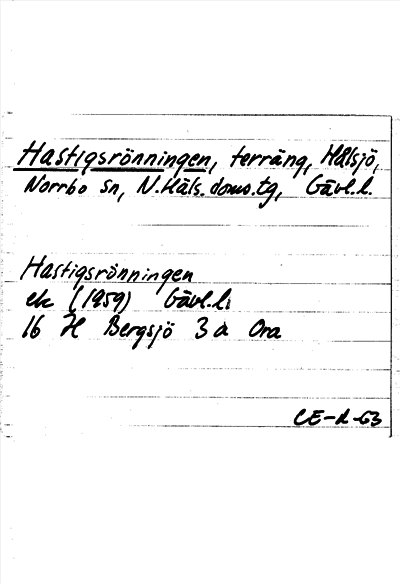 Hastigsrönningen, terräng, Hålsjö,
Norrbo sn, N.Häls. doms.tg, Gävl.l.
Hastigsrönningen
ek (1959) Gävl.l.
16 H Bergsjö 3 a Ora
CE-d-63